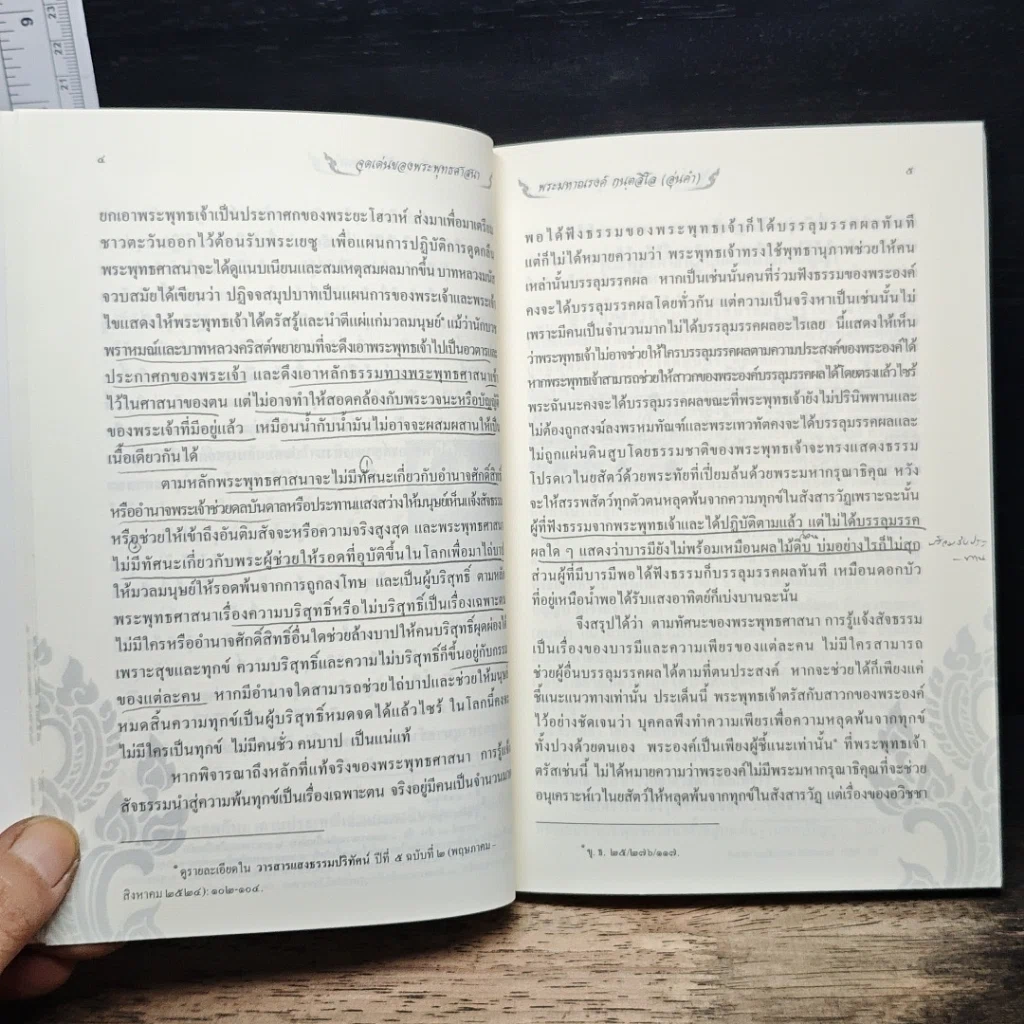 ๔
จุดเด่นของพระพุทธศาสนา
ยกเอาพระพุทธเจ้าเป็นประกาศกของพระยะโฮวาห์ ส่งมาเพื่อมาเตรียม
ชาวตะวันออกไว้ต้อนรับพระเยซู เพื่อแผนการปฏิบัติการดูดกลืน
พระพุทธศาสนาจะได้ดูแนบเนียนและสมเหตุสมผลมากขึ้น บาทหลวงมนัส
จวบสมัยได้เขียนว่า ปฏิจจสมุปบาทเป็นแผนการของพระเจ้าและพระเจ้า
ไขแสดงให้พระพุทธเจ้าได้ตรัสรู้และนำตีแผ่แก่มวลมนุษย์* แม้ว่านักบวช
พราหมณ์และบาทหลวงคริสต์พยายามที่จะดึงเอาพระพุทธเจ้าไปเป็นอวตารและ
ประกาศกของพระเจ้า และดึงเอาหลักธรรมทางพระพุทธศาสนาเข้า
ไว้ในศาสนาของตน แต่ไม่อาจทำให้สอดคล้องกับพระวจนะหรือบัญญัติ
ของพระเจ้าที่มีอยู่แล้ว เหมือนน้ำกับน้ำมันไม่อาจจะผสมผสานให้เป็น
เนื้อเดียวกันได้
ตามหลักพระพุทธศาสนาจะไม่มีทัศนะเกี่ยวกับอำนาจศักดิ์สิทธิ์
หรืออำนาจพระเจ้าช่วยดลบันดาลหรือประทานแสงสว่างให้มนุษย์เห็นแจ้งสัจธรรม
หรือช่วยให้เข้าถึงอันติมสัจจะหรือความจริงสูงสุด และพระพุทธศาสนา
ไม่มีทัศนะเกี่ยวกับพระผู้ช่วยให้รอดที่อุบัติขึ้นในโลกเพื่อมาไถ่บาป
ให้มวลมนุษย์ให้รอดพ้นจากการถูกลงโทษ และเป็นผู้บริสุทธิ์ ตามหลัก
พระพุทธศาสนาเรื่องความบริสุทธิ์หรือไม่บริสุทธิ์เป็นเรื่องเฉพาะตน
ไม่มีใครหรืออำนาจศักดิ์สิทธิ์อื่นใดช่วยล้างบาปให้คนบริสุทธิ์ผุดผ่องได้
เพราะสุขและทุกข์ ความบริสุทธิ์และความไม่บริสุทธิ์ก็ขึ้นอยู่กับกรรม
ของแต่ละคน หากมีอำนาจใดสามารถช่วยไถ่บาปและช่วยให้มนุษย์
หมดสิ้นความทุกข์เป็นผู้บริสุทธิ์หมดจดได้แล้วไซร้ ในโลกนี้คงจะ
ไม่มีใครเป็นทุกข์ ไม่มีคนชั่ว คนบาป เป็นแน่แท้
หากพิจารณาถึงหลักที่แท้จริงของพระพุทธศาสนา การรู้แจ้ง
สัจธรรมนำสู่ความพ้นทุกข์เป็นเรื่องเฉพาะตน จริงอยู่มีคนเป็นจำนวนมาก
* ดูรายละเอียดใน วารสารแสงธรรมปริทัศน์ ปีที่ ๕ ฉบับที่ ๒ (พฤษภาคม –
สิงหาคม ๒๕๒๔): ๑๐๒-๑๐๔.
พระมหาณรงค์ กนฺตสีโล (อุ่นคำ)
๕
พอได้ฟังธรรมของพระพุทธเจ้าก็ได้บรรลุมรรคผลทันที
แต่ก็ไม่ได้หมายความว่า พระพุทธเจ้าทรงใช้พุทธานุภาพช่วยให้คน
เหล่านั้นบรรลุมรรคผล หากเป็นเช่นนั้นคนที่ร่วมฟังธรรมของพระองค์
คงจะได้บรรลุมรรคผลโดยทั่วกัน แต่ความเป็นจริงหาเป็นเช่นนั้นไม่
เพราะมีคนเป็นจำนวนมากไม่ได้บรรลุมรรคผลอะไรเลย นี้แสดงให้เห็น
ว่าพระพุทธเจ้าไม่อาจช่วยให้ใครบรรลุมรรคผลตามความประสงค์ของพระองค์ได้
หากพระพุทธเจ้าสามารถช่วยให้สาวกของพระองค์บรรลุมรรคผลได้โดยตรงแล้วไซร้
พระฉันนะคงจะได้บรรลุมรรคผลขณะที่พระพุทธเจ้ายังไม่ปรินิพพานและ
ไม่ต้องถูกสงฆ์ลงพรหมทัณฑ์และพระเทวทัตคงจะได้บรรลุมรรคผลและ
ไม่ถูกแผ่นดินสูบโดยธรรมชาติของพระพุทธเจ้าจะทรงแสดงธรรม
โปรดเวไนยสัตว์ด้วยพระทัยที่เปี่ยมล้นด้วยพระมหากรุณาธิคุณ หวัง
จะให้สรรพสัตว์ทุกตัวตนหลุดพ้นจากความทุกข์ในสังสารวัฏเพราะฉะนั้น
ผู้ที่ฟังธรรมจากพระพุทธเจ้าและได้ปฏิบัติตามแล้ว แต่ไม่ได้บรรลุมรรค
ผลใด ๆ แสดงว่าบารมียังไม่พร้อมเหมือนผลไม้ดิบ บ่มอย่างไรก็ไม่สุก
ส่วนผู้ที่มีบารมีพอได้ฟังธรรมก็บรรลุมรรคผลทันที เหมือนดอกบัว
ที่อยู่เหนือน้ำพอได้รับแสงอาทิตย์ก็เบ่งบานฉะนั้น
จึงสรุปได้ว่า ตามทัศนะของพระพุทธศาสนา การรู้แจ้งสัจธรรม
เป็นเรื่องของบารมีและความเพียรของแต่ละคน ไม่มีใครสามารถ
ช่วยผู้อื่นบรรลุมรรคผลได้ตามที่ตนประสงค์ หากจะช่วยได้ก็เพียงแค่
ชี้แนะแนวทางเท่านั้น ประเด็นนี้ พระพุทธเจ้าตรัสกับสาวกของพระองค์
ไว้อย่างชัดเจนว่า บุคคลพึงทำความเพียรเพื่อความหลุดพ้นจากทุกข์
ทั้งปวงด้วยตนเอง พระองค์เป็นเพียงผู้ชี้แนะเท่านั้น* ที่พระพุทธเจ้า
ตรัสเช่นนี้ ไม่ได้หมายความว่าพระองค์ไม่มีพระมหากรุณาธิคุณที่จะช่วย
อนุเคราะห์เวไนยสัตว์ให้หลุดพ้นจากทุกข์ในสังสารวัฏ แต่เรื่องของอวิชชา
* ขุ. ธ. ๒๕/๒๗๖/๑๑๗.
9
23
22
21